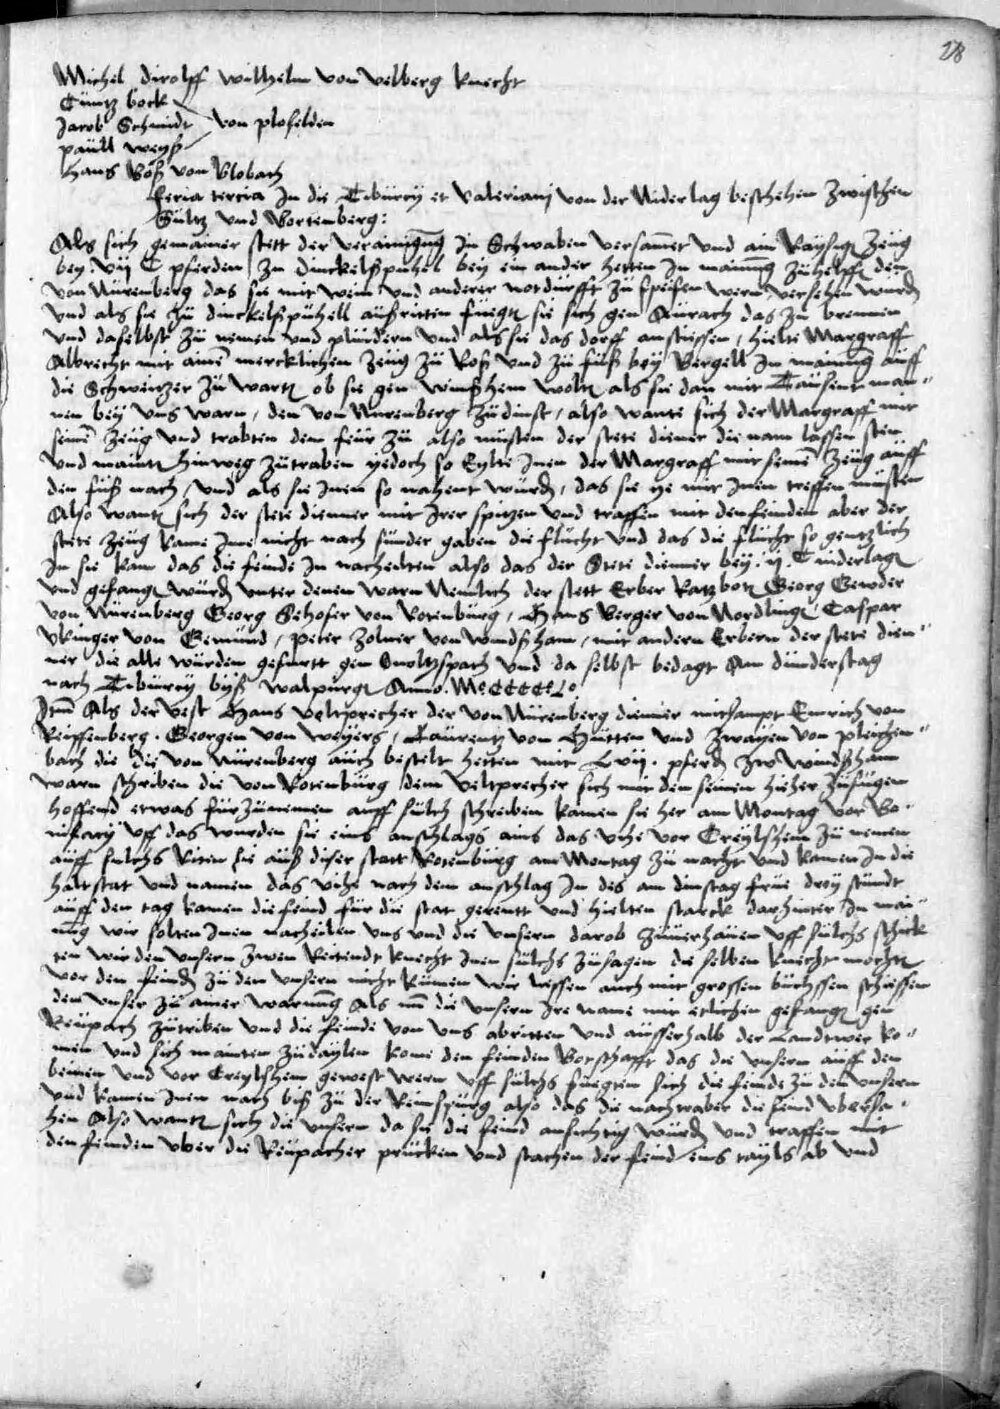 28
Michel dirolff wilhelm von velberg knecht
Cüntz bock
Jacob Schmidt von plofelden
paüll weyß
hans Voß von Blobach
feria tercia In die Tiburcy et valerianj von der Niderlag beschehen Zwischen
Sültz und Vortenberg:
Als sich gemainer stett der verainigung In Schwaben versamet und ain Raysig Zeüg
bey vij C pferden zu dinckelßpuhel bey ein ander hetten In mainung Zühelffe den
von Nürenberg das sie mit wein und anderer notdurfft zu speisen wern versehen wurd
und als sie zu dinckelßpuhell außritten fuegt sie sich gen Aürach das zu brennen
und daselbst zu nemen und plündern und als sie das dorff anstiessen, hielte Margraff
Albrecht mit ainem mercklichen Zeüg zu Roß und zu füß bey Bergell In mainung auff
die Schweitzer zu wartn ob sie gen winßheim woltn als sie dan mit Tausent man=
nen bey uns warn, den von Nürenberg zu dinst, also wante sich der Margraff mit
seinem Zeüg und trabten dem feür zu also müsten der stete diener die nam lassen sten
und maintn hinweg zütraben yedoch so Eylte Inen der Margraff mit seinem Zeüg auff
den füß nach, und als sie Inen so nahent würd, das sie ye mit Inen treffen müsten
Also wantn sich der stete dienner mit Irer spitzen und traffen mit den feinden aber der
stete Zeüg kame Ine nicht nach sünder gaben die flücht und das die flücht so gentzlich
In sie kam das die feinde In nacheilten also das der Stete dienner bey ij C niderlagn
und gefangn würd unter denen warn Nemlich der stett Erber Ratzbotn Georg Gewder
von Nürenberg Georg Sehofer von Rotenbürg, Hans Berger von Nordlingn, Caspar
Vkinger von Gemünd, peter Zolner von windßham, mit andern Erbern der stete dien=
ner die alle würden gefurtt gen Onoltzspach und da selbst bedagt Am dünderstag
nach Tibürcy biß walpürgn Anno. Mo CCCCo Lo
Itm Als der vest Hans veltprecher der von Nürenberg dienner mitsampt Emrich von
Reiffenberg. Georgen von weyers, Laurentz vom Hütten und Zwayen von pleichen=
bach die die von Nürenberg auch bestelt hetten mit Lvij. pferd zw windßham
warn schriben die von Rotenbürg dem veltprecher sich mit den seinen hieher zufügen
hoffend etwas fürzunemen auff sülch schreiben kamen sie her am Montag vor Bo=
nifacy uff das wurden sie eins anschlags ains das vihe vor Creylsheim zu nemen
auff sulchs Riten sie auß diser statt Rotenbürg am Montag zu nacht und kamen In die
haltstat und namen das vihe nach dem anschlag In des am dinstag frue drey stündt
auff den tag kamen die feind für die stat gerentt und hielten starck darhinter In mai=
nung wir solten Inen nacheilen uns und die unsern darob zuuerhaüen uff sülchs schick
ten wir den unsern Zwen Reitendt knecht Inen sülchs zusagen die selben knecht mochtn
vor den feinden zu den unsern nicht kümen wir liessen auch mit grossen büchssen schiessen
den unser zu ainer warnung Als nun die unsern Ire name mit etlichen gefangn gen
Reüpach zütriben und die feinde von uns abritten und aüsserhalb der Landtwer ko=
men und sich mainten zudaylen kome den feinden Botschafft das die unsern auff den
beinen und vor Creylshem gewest wern uff sülchs fuegten sich die feinde zu den unsern
und kamen Inen nach biß zu der Reinspürg also das die nachtraber die feind ubersa=
hen Also wantn sich die unsern da sie die feind ansichtig würd und traffen mit
den feinden uber die Reüpacher prücken und stachen der feind eins tayls ab und